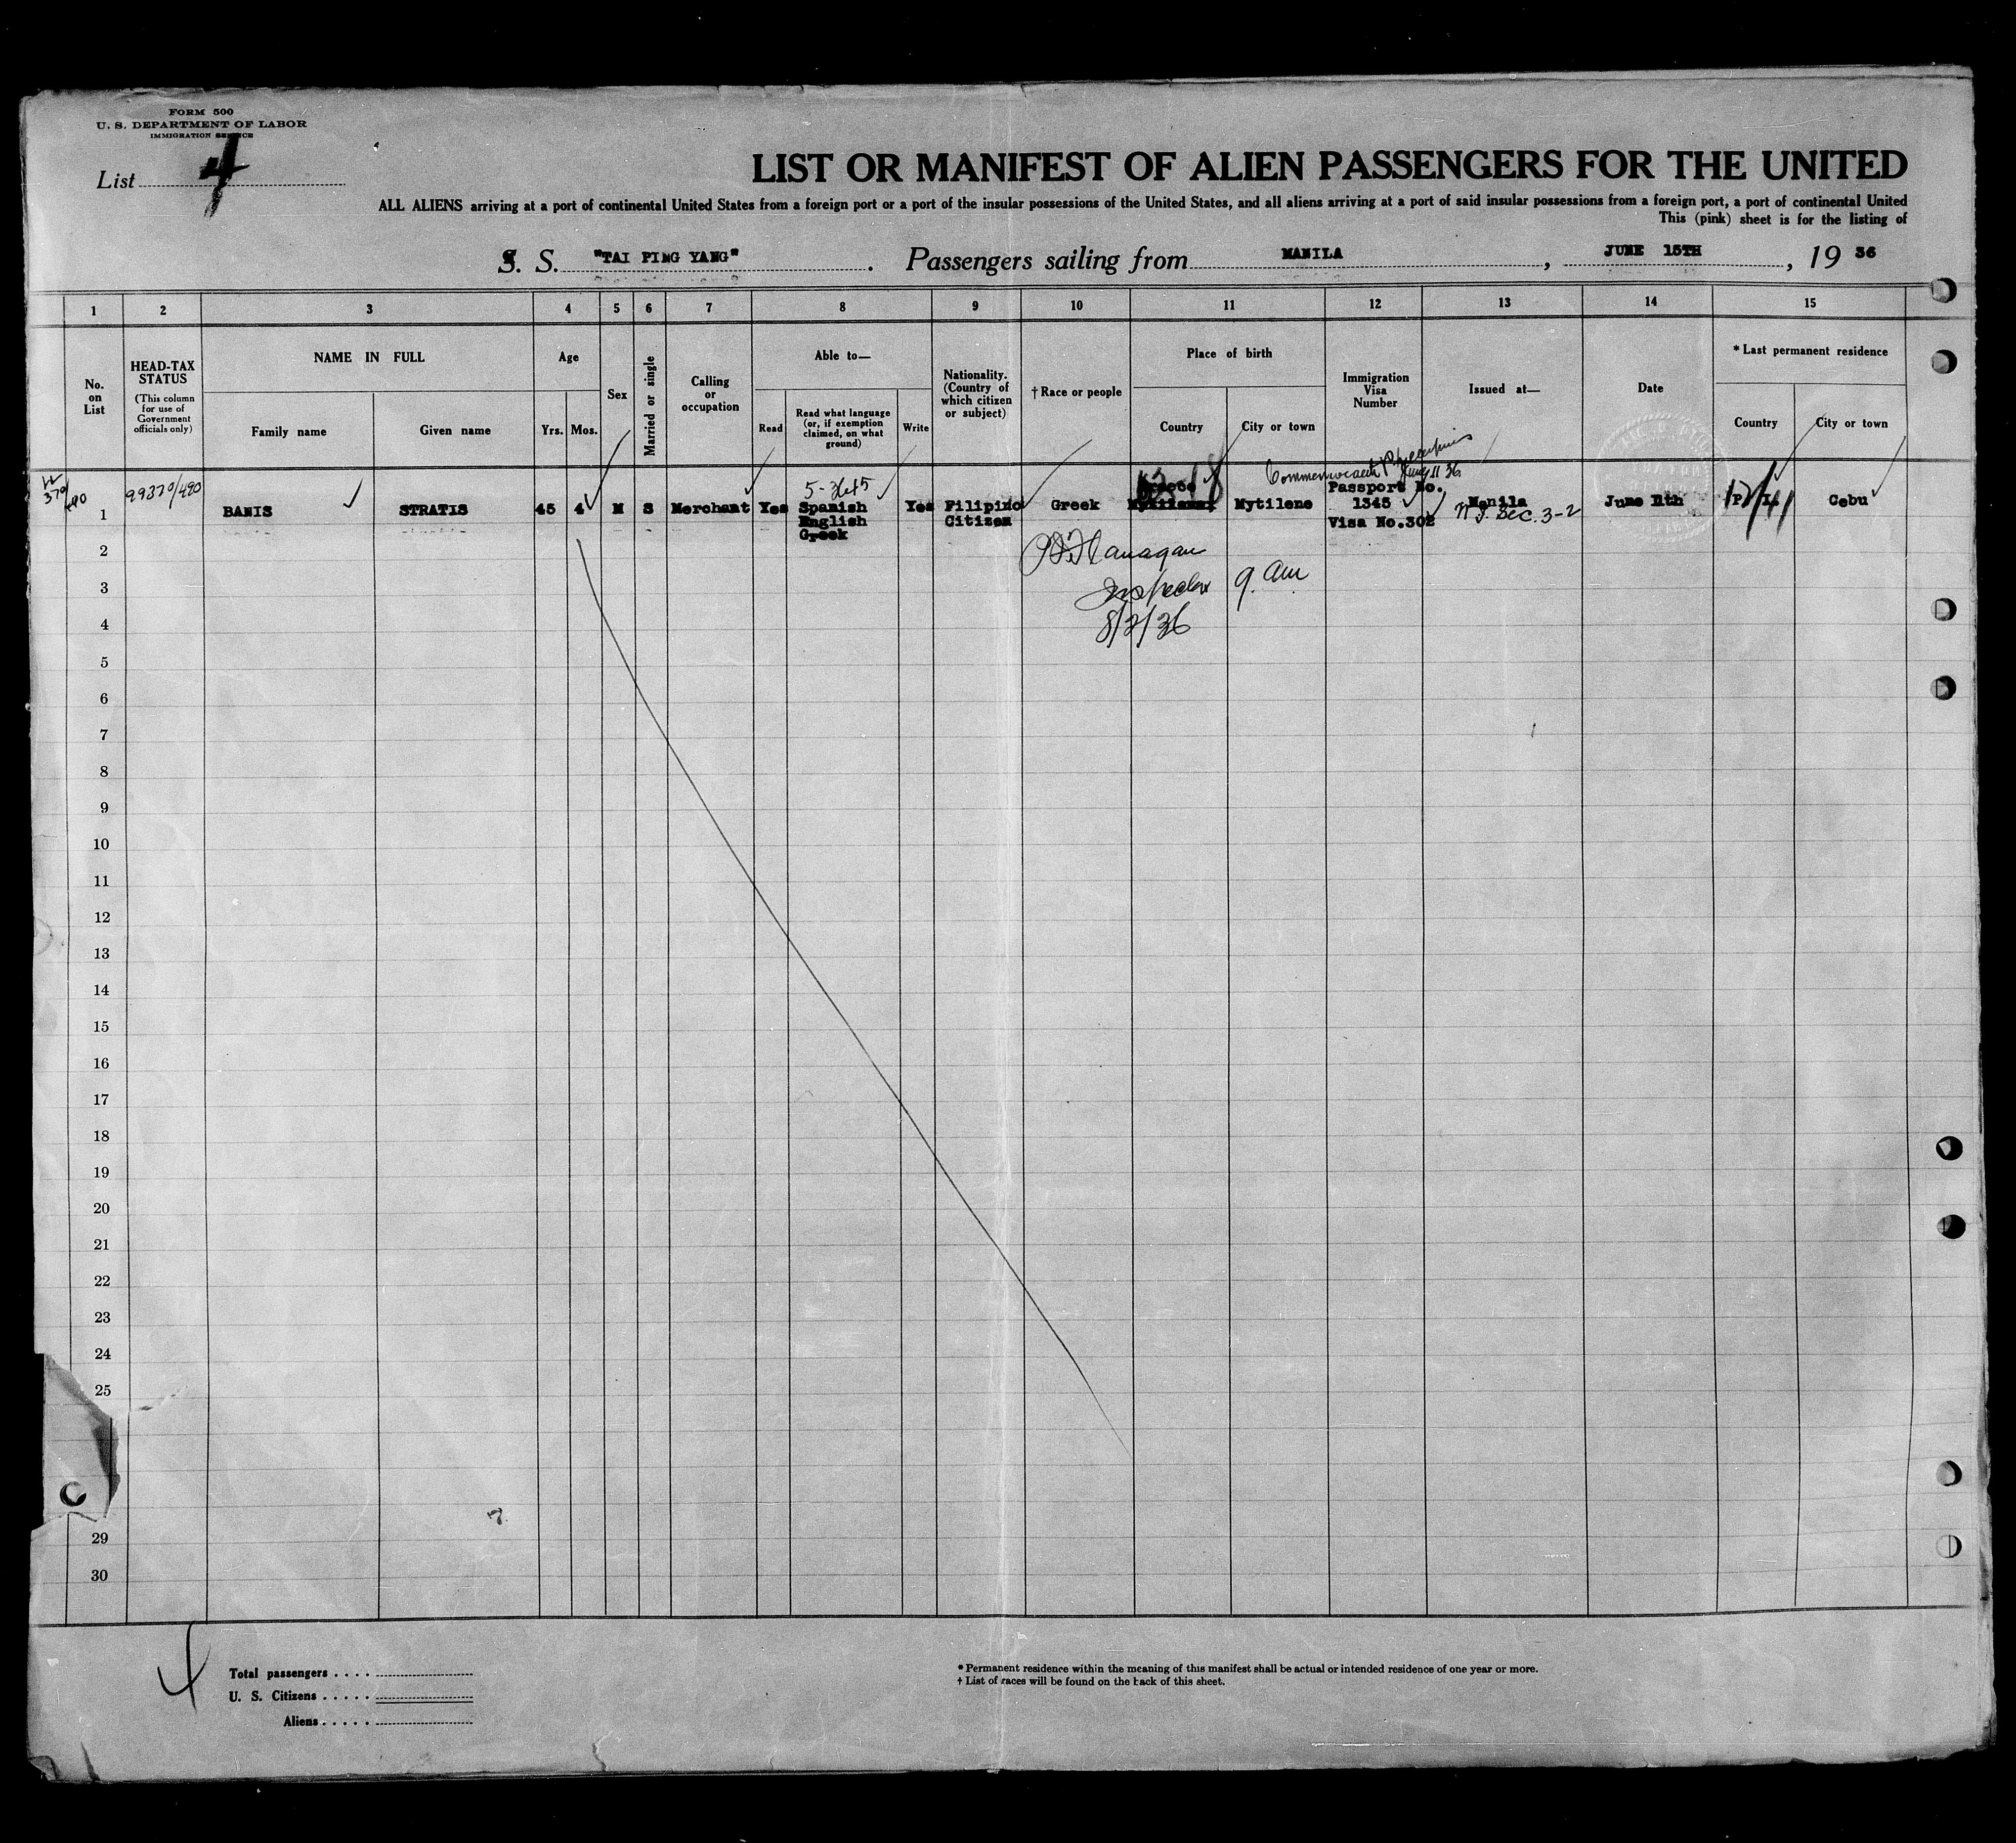 FORM 500
U. S. DEPARTMENT OF LABOR
IMMIGRATION SERVICE
List 4
LIST OR MANIFEST OF ALIEN PASSENGERS FOR THE UNITED
ALL ALIENS arriving at a port of continental United States from a foreign port or a port of the insular possessions of the United States, and all aliens arriving at a port of said insular possessions from a foreign port, a port of continental United
This (pink) sheet is for the listing of
S. S. "TAI PING YANG". Passengers sailing from MANILA, JUNE 15TH, 19 36
1 2 3 4 5 6 7 8 9 10 11 12 13 14 15
No. on List
HEAD-TAX STATUS
(This column for use of Government officials only)
NAME IN FULL
Family name
Given name
Age
Yrs.
Mos.
Sex
Married or single
Calling or occupation
Able to—
Read
Read what language (or, if exemption claimed, on what ground)
Write
Nationality. (Country of which citizen or subject)
† Race or people
Place of birth
Country
City or town
Immigration Visa Number
Issued at—
Date
* Last permanent residence
Country
City or town
Commonwealth Philippines
June 11 36
370/490
99370/490
1 BANIS STRATIS 45 4 M S Merchant Yes
5-3645
Spanish
English
Greek
Yes
Filipino
Citizen
Greek
Greece
Mytilene
Passport No.
1345
Visa No.302
Manila
Sec. 3-2
June 11th
P. I.
Cebu
Flanagan
Inspector 9. am
8/2/36
2
3
4
5
6
7
8
9
10
11
12
13
14
15
16
17
18
19
20
21
22
23
24
25
29
30
4
Total passengers . . . .
U. S. Citizens . . . . .
Aliens . . . . .
* Permanent residence within the meaning of this manifest shall be actual or intended residence of one year or more.
† List of races will be found on the back of this sheet.